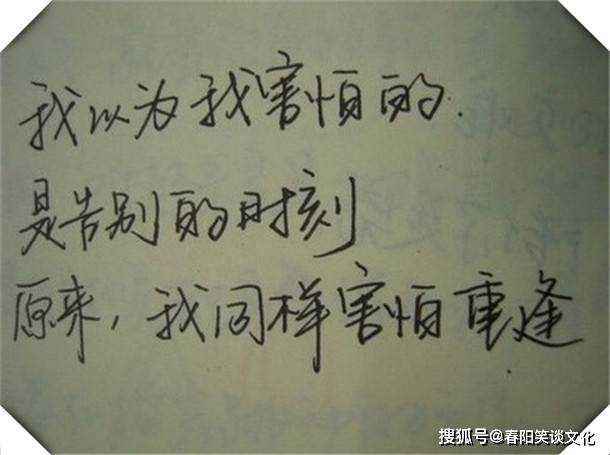 我以为我害怕的.
是告别的时刻
原来，我同样害怕重逢
搜狐号@春阳笑谈文化